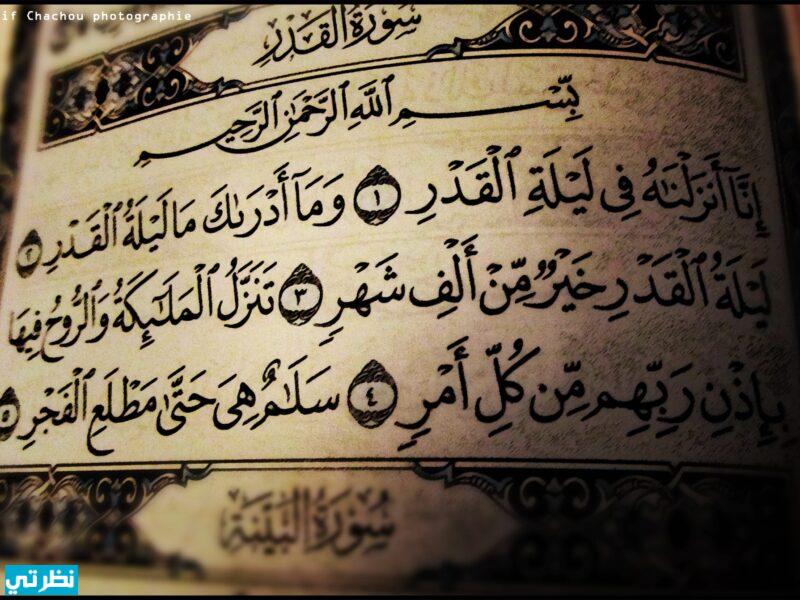 if Chachou photographie
سُورَةُ الْقَدْرِ
بِسْمِ اللَّهِ الرَّحْمَٰنِ الرَّحِيمِ
إِنَّا أَنزَلْنَاهُ فِي لَيْلَةِ الْقَدْرِ ١ وَمَا أَدْرَاكَ مَا لَيْلَةُ الْقَدْرِ ٢
لَيْلَةُ الْقَدْرِ خَيْرٌ مِّنْ أَلْفِ شَهْرٍ ٣ تَنَزَّلُ الْمَلَائِكَةُ وَالرُّوحُ فِيهَا
بِإِذْنِ رَبِّهِم مِّن كُلِّ أَمْرٍ ٤ سَلَامٌ هِيَ حَتَّىٰ مَطْلَعِ الْفَجْرِ ٥
سُورَةُ الْبَيِّنَةِ
نظرتي